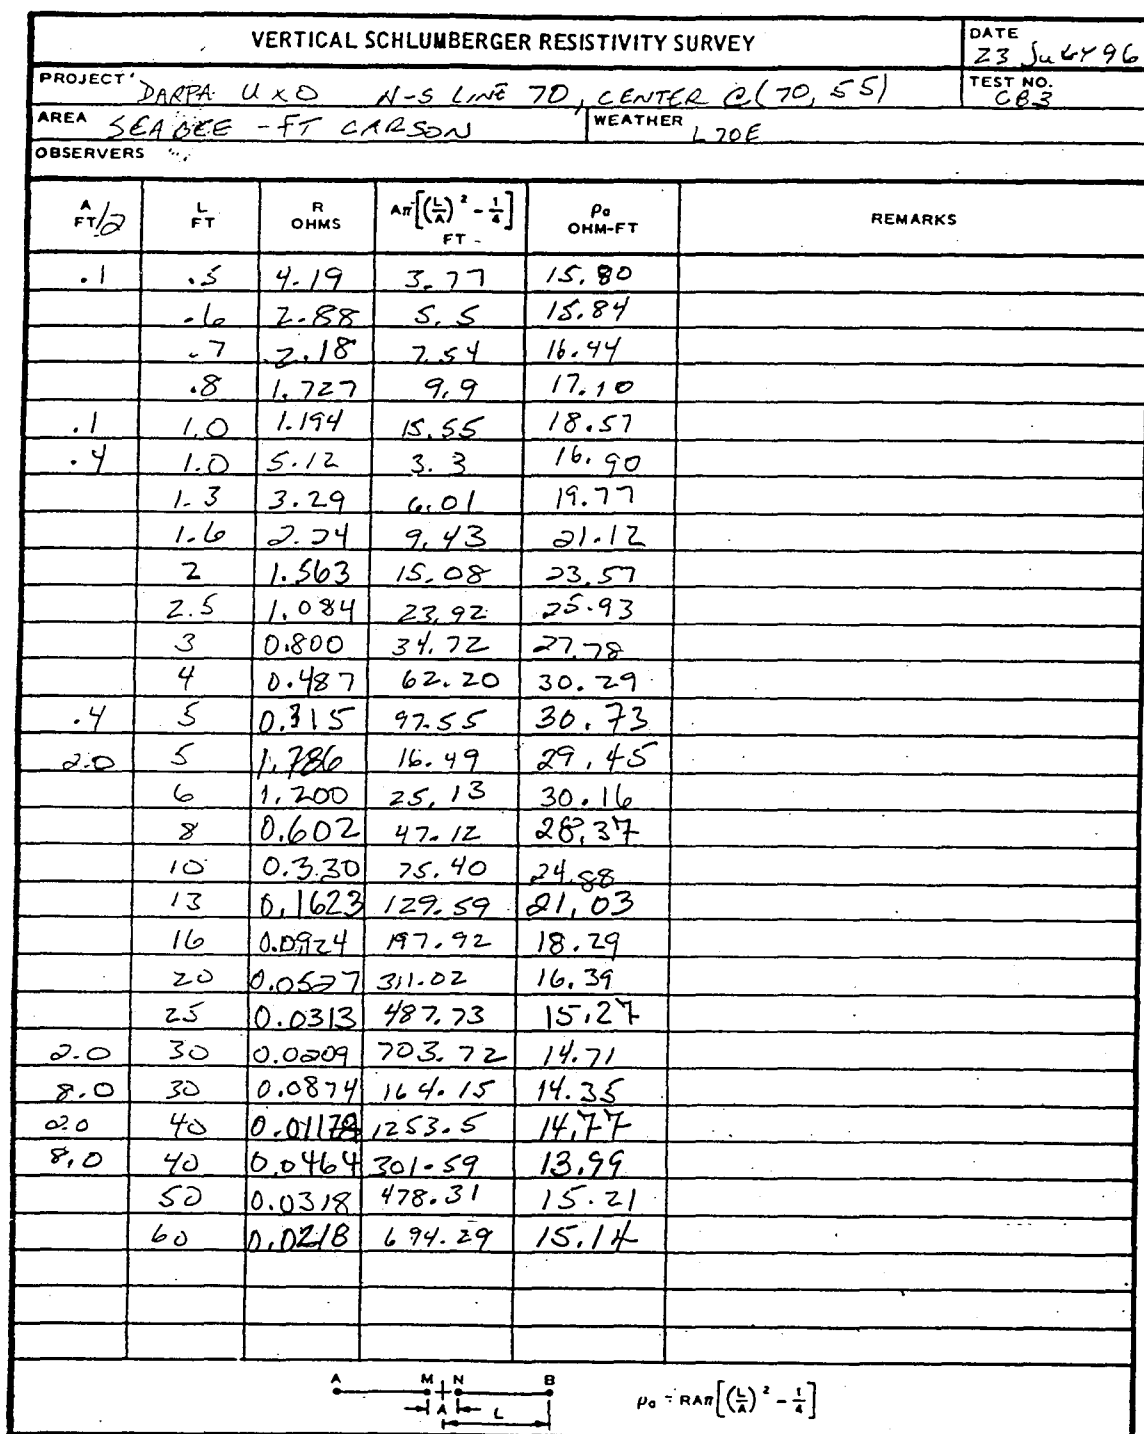 VERTICAL SCHLUMBERGER RESISTIVITY SURVEY
DATE
23 JULY 96
PROJECT DARPA UXO N-S LINE 70, CENTER @(70, 55)
TEST NO.
CB3
AREA SEABEE - FT CARSON
WEATHER
OBSERVERS
A FT/2 L FT R OHMS Aπ[(L/A)² - 1/4] FT ρa OHM-FT REMARKS
.1 .5 4.19 3.77 15.80
.6 2.88 5.5 15.84
.7 2.18 7.54 16.44
.8 1.727 9.9 17.10
.1 1.0 1.194 15.55 18.57
.4 1.0 5.12 3.3 16.90
1.3 3.29 6.01 19.77
1.6 2.24 9.43 21.12
2 1.563 15.08 23.57
2.5 1.084 23.92 25.93
3 0.800 34.72 27.78
4 0.487 62.20 30.29
.4 5 0.315 97.55 30.73
2.0 5 1.786 16.49 29.45
6 1.200 25.13 30.16
8 0.602 47.12 28.37
10 0.330 75.40 24.88
13 0.1623 129.59 21.03
16 0.0924 197.92 18.29
20 0.0527 311.02 16.39
25 0.0313 487.73 15.27
2.0 30 0.0209 703.72 14.71
8.0 30 0.0874 164.15 14.35
2.0 40 0.01178 1253.5 14.77
8.0 40 0.0464 301.59 13.99
50 0.0318 478.31 15.21
60 0.0218 694.29 15.14
A M N B
A L
ρa = RAπ[(L/A)² - 1/4]